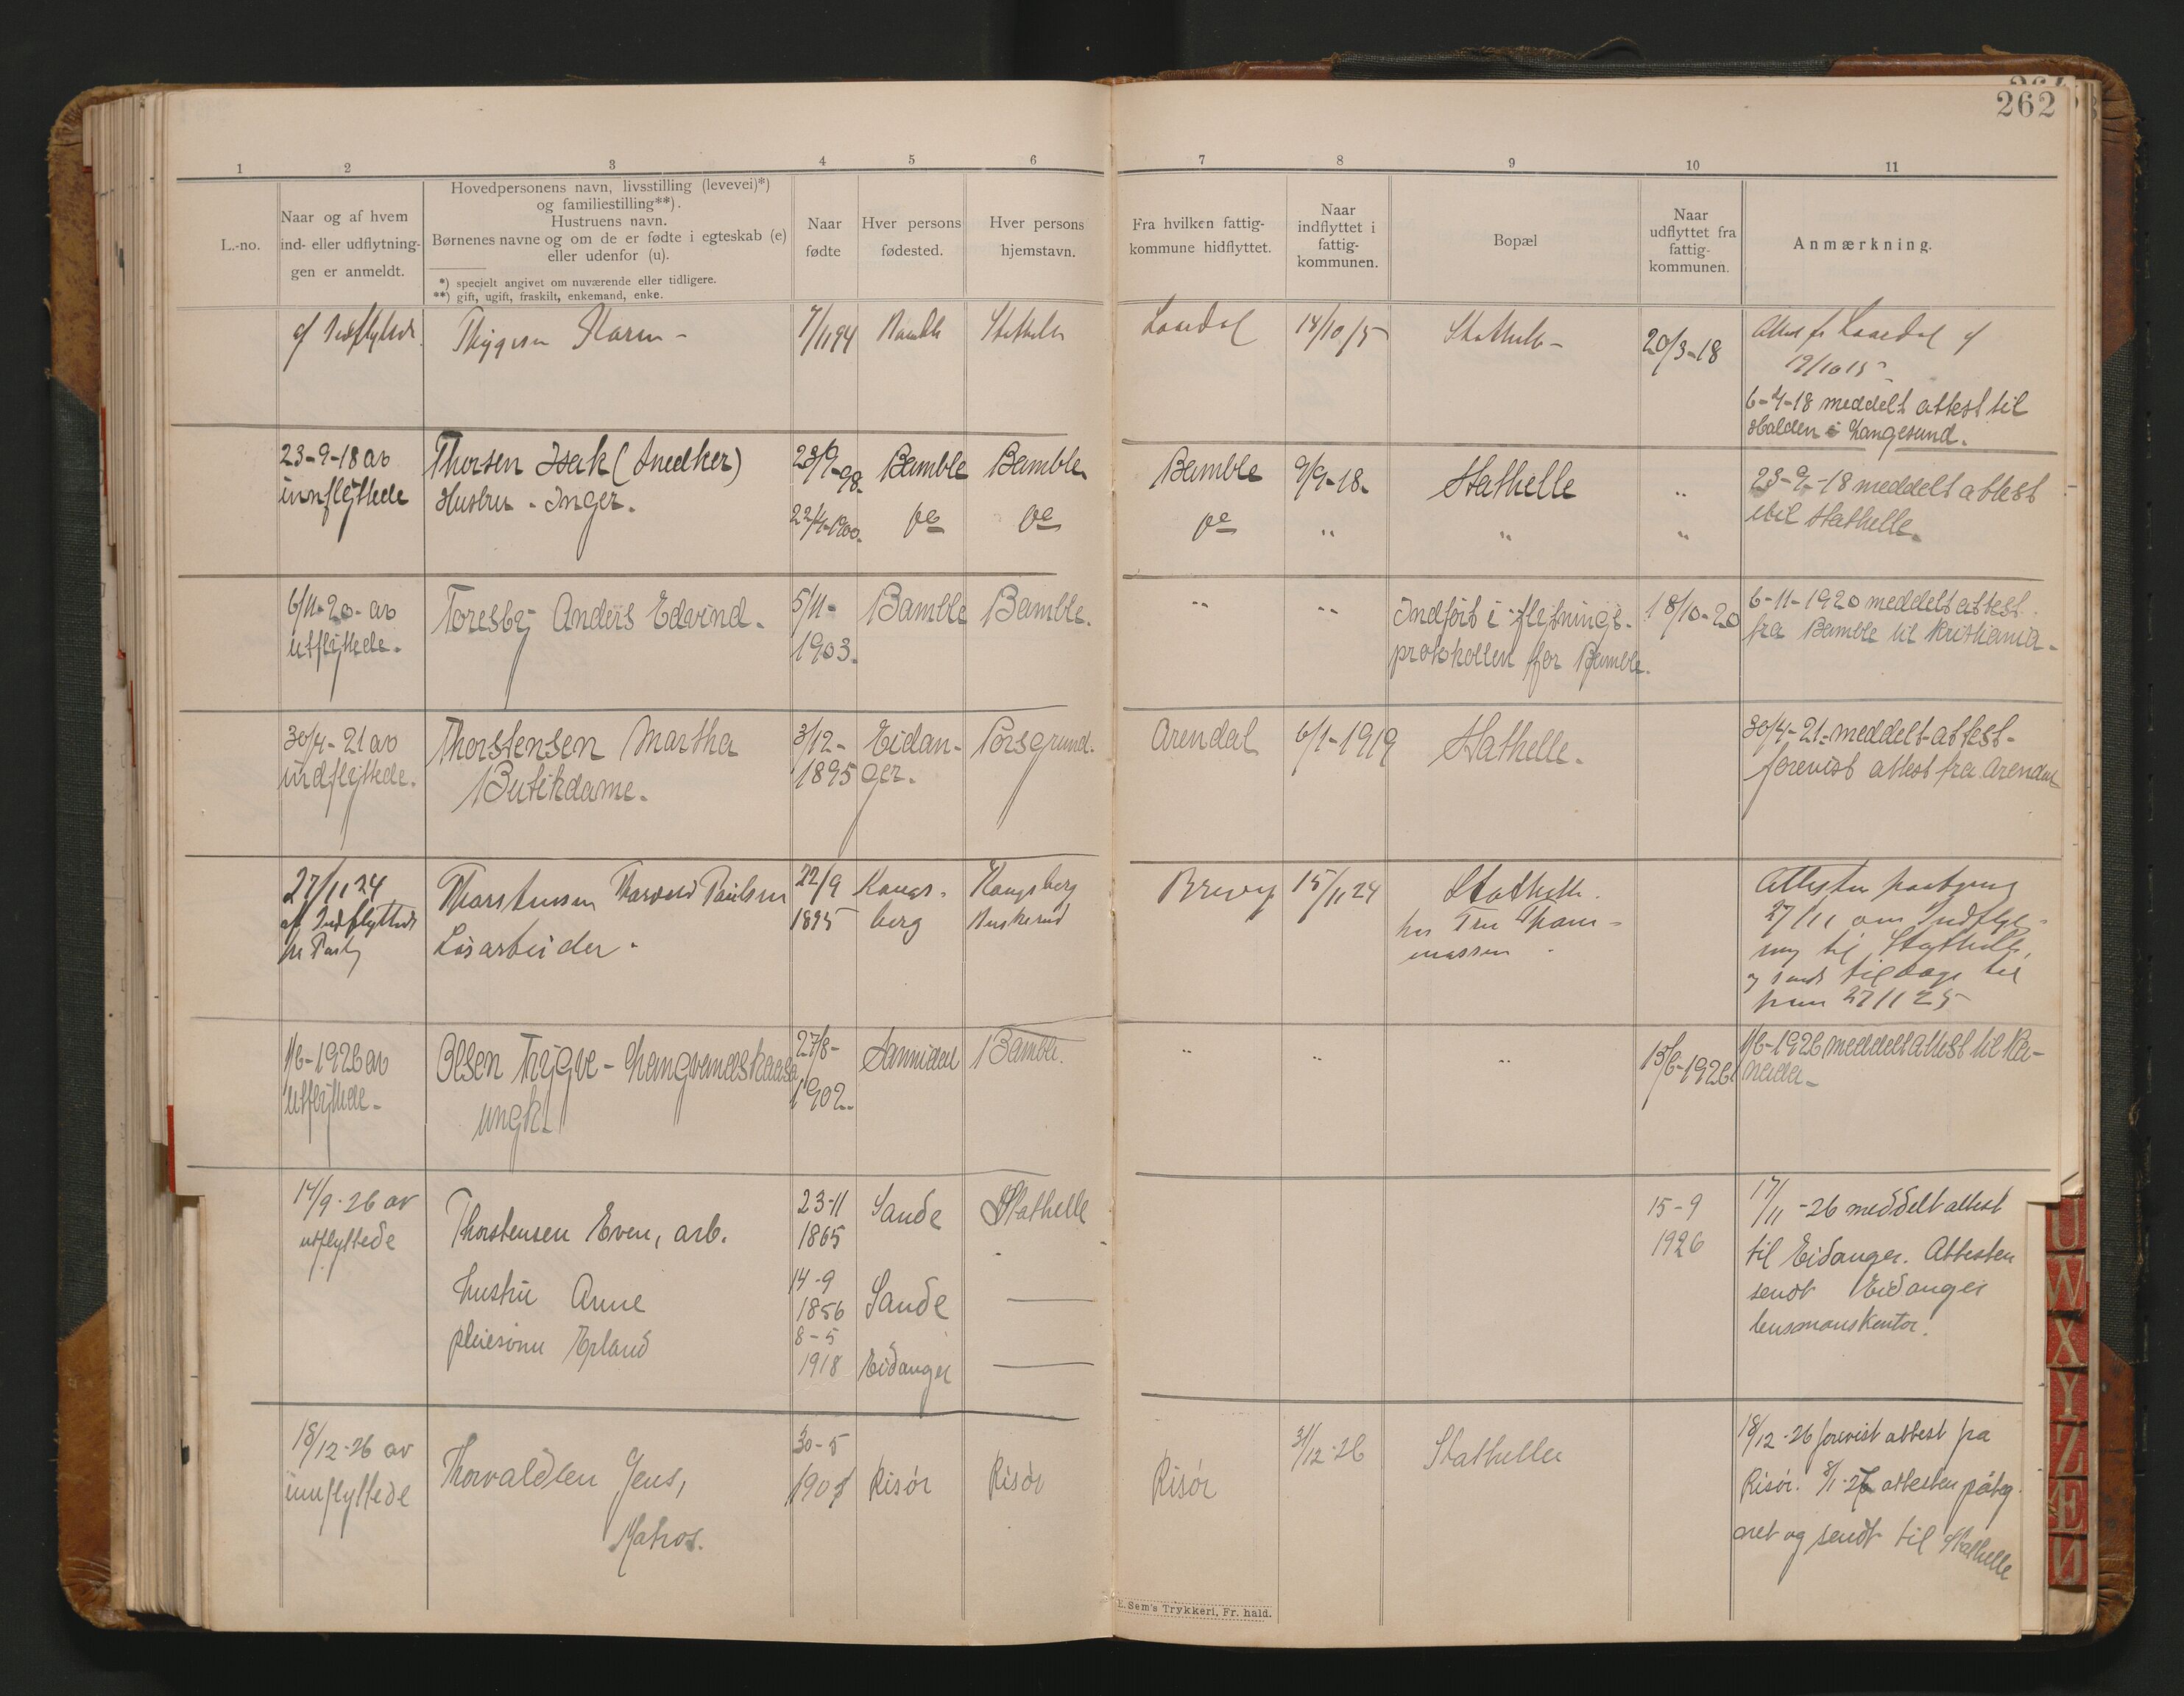 262
1 2 3 4 5 6 7 8 9 10 11
L.-no.
Naar og af hvem
ind- eller udflytning-
gen er anmeldt.
Hovedpersonens navn, livsstilling (levevei)*)
og familiestilling**).
Hustruens navn.
Børnenes navne og om de er fødte i egteskab (e)
eller udenfor (u).
*) specielt angivet om nuværende eller tidligere.
**) gift, ugift, fraskilt, enkemand, enke.
Naar
fødte
Hver persons
fødested.
Hver persons
hjemstavn.
Fra hvilken fattig-
kommune hidflyttet.
Naar
indflyttet i
fattig-
kommunen.
Bopæl
Naar
udflyttet fra
fattig-
kommunen.
Anmærkning.
af Indflyttede
Thygesen Karen -
7/1194
Bamble
Stathelle
Laardal
14/10 15
Stathelle -
20/3-18
Attest fr Laardal af
19/10 15
6-4-18 meddelt attest til
Halden i Langesund.
23-9-18 av
innflyttede
Thorsen Isak (Snedker)
Hustru - Inger.
23/9-98.
22/4-1900.
Bamble
Do
Bamble
Do
Bamble
Do
9/9-18-
"
Stathelle
"
"
"
23-9-18 meddelt attest
til Stathelle.
6/11-20- av
utflyttede.
Toresby Anders Edvind.
5/11-
1903.
Bamble
Bamble.
"
"
Indført i flytnings-
protokollen for Bamble.
18/10-20
6-11-1920 meddelt attest
fra Bamble til Kristiania-
30/4-21 av
indflyttede.
Thorstensen Martha
Butikdame.
3/12-
1895
Eidan-
ger.
Porsgrund.
Arendal
6/1-1919
Stathelle.
30/4-21- meddelt attest-
forevist attest fra Arendal
27/11 24
af Indflyttede
pr Post
Thorstensen Tharald Paulsen
Løsarbeider.
22/9
1895
Kongs-
berg
Kongsberg
Buskerud
Brevig
15/11 24
Stathelle.
hos Fru Thom-
massen
Attesten paategnet
27/11 om Indflyt-
ning til Stathelle,
og sendt tilbage til
ham 27/11 25
1/6-1926 av
utflyttede-
Olsen Trygve - Langvandskaasa
ungk.
27/8-
1902-
Sannidal
Bamble.
"
"
"
15/6-1926
1/6-1926 meddelt attest til Ka-
nada-
14/9-26 av
utflyttede
Thorstensen Even, arb.
hustru Anne
pleiesønn Erland
23-11
1865
14-9
1856
8-5
1918
Sande
Sande
Eidanger
Stathelle
15-9
1926
17/11-26 meddelt attest
til Eidanger. Attesten
sendt Eidanger
lensmannskontor.
18/12-26 av
innflyttede
Thorvaldsen Jens,
Matros.
30-5
Risør
Risør
Risør
31/12-26
Stathelle
18/12-26 forevist attest fra
Risør. 8/1-27 attesten påteg-
net og sendt til Stathelle
E. Sem's Trykkeri, Fr. hald.
U
W
X
Y
Z
Æ